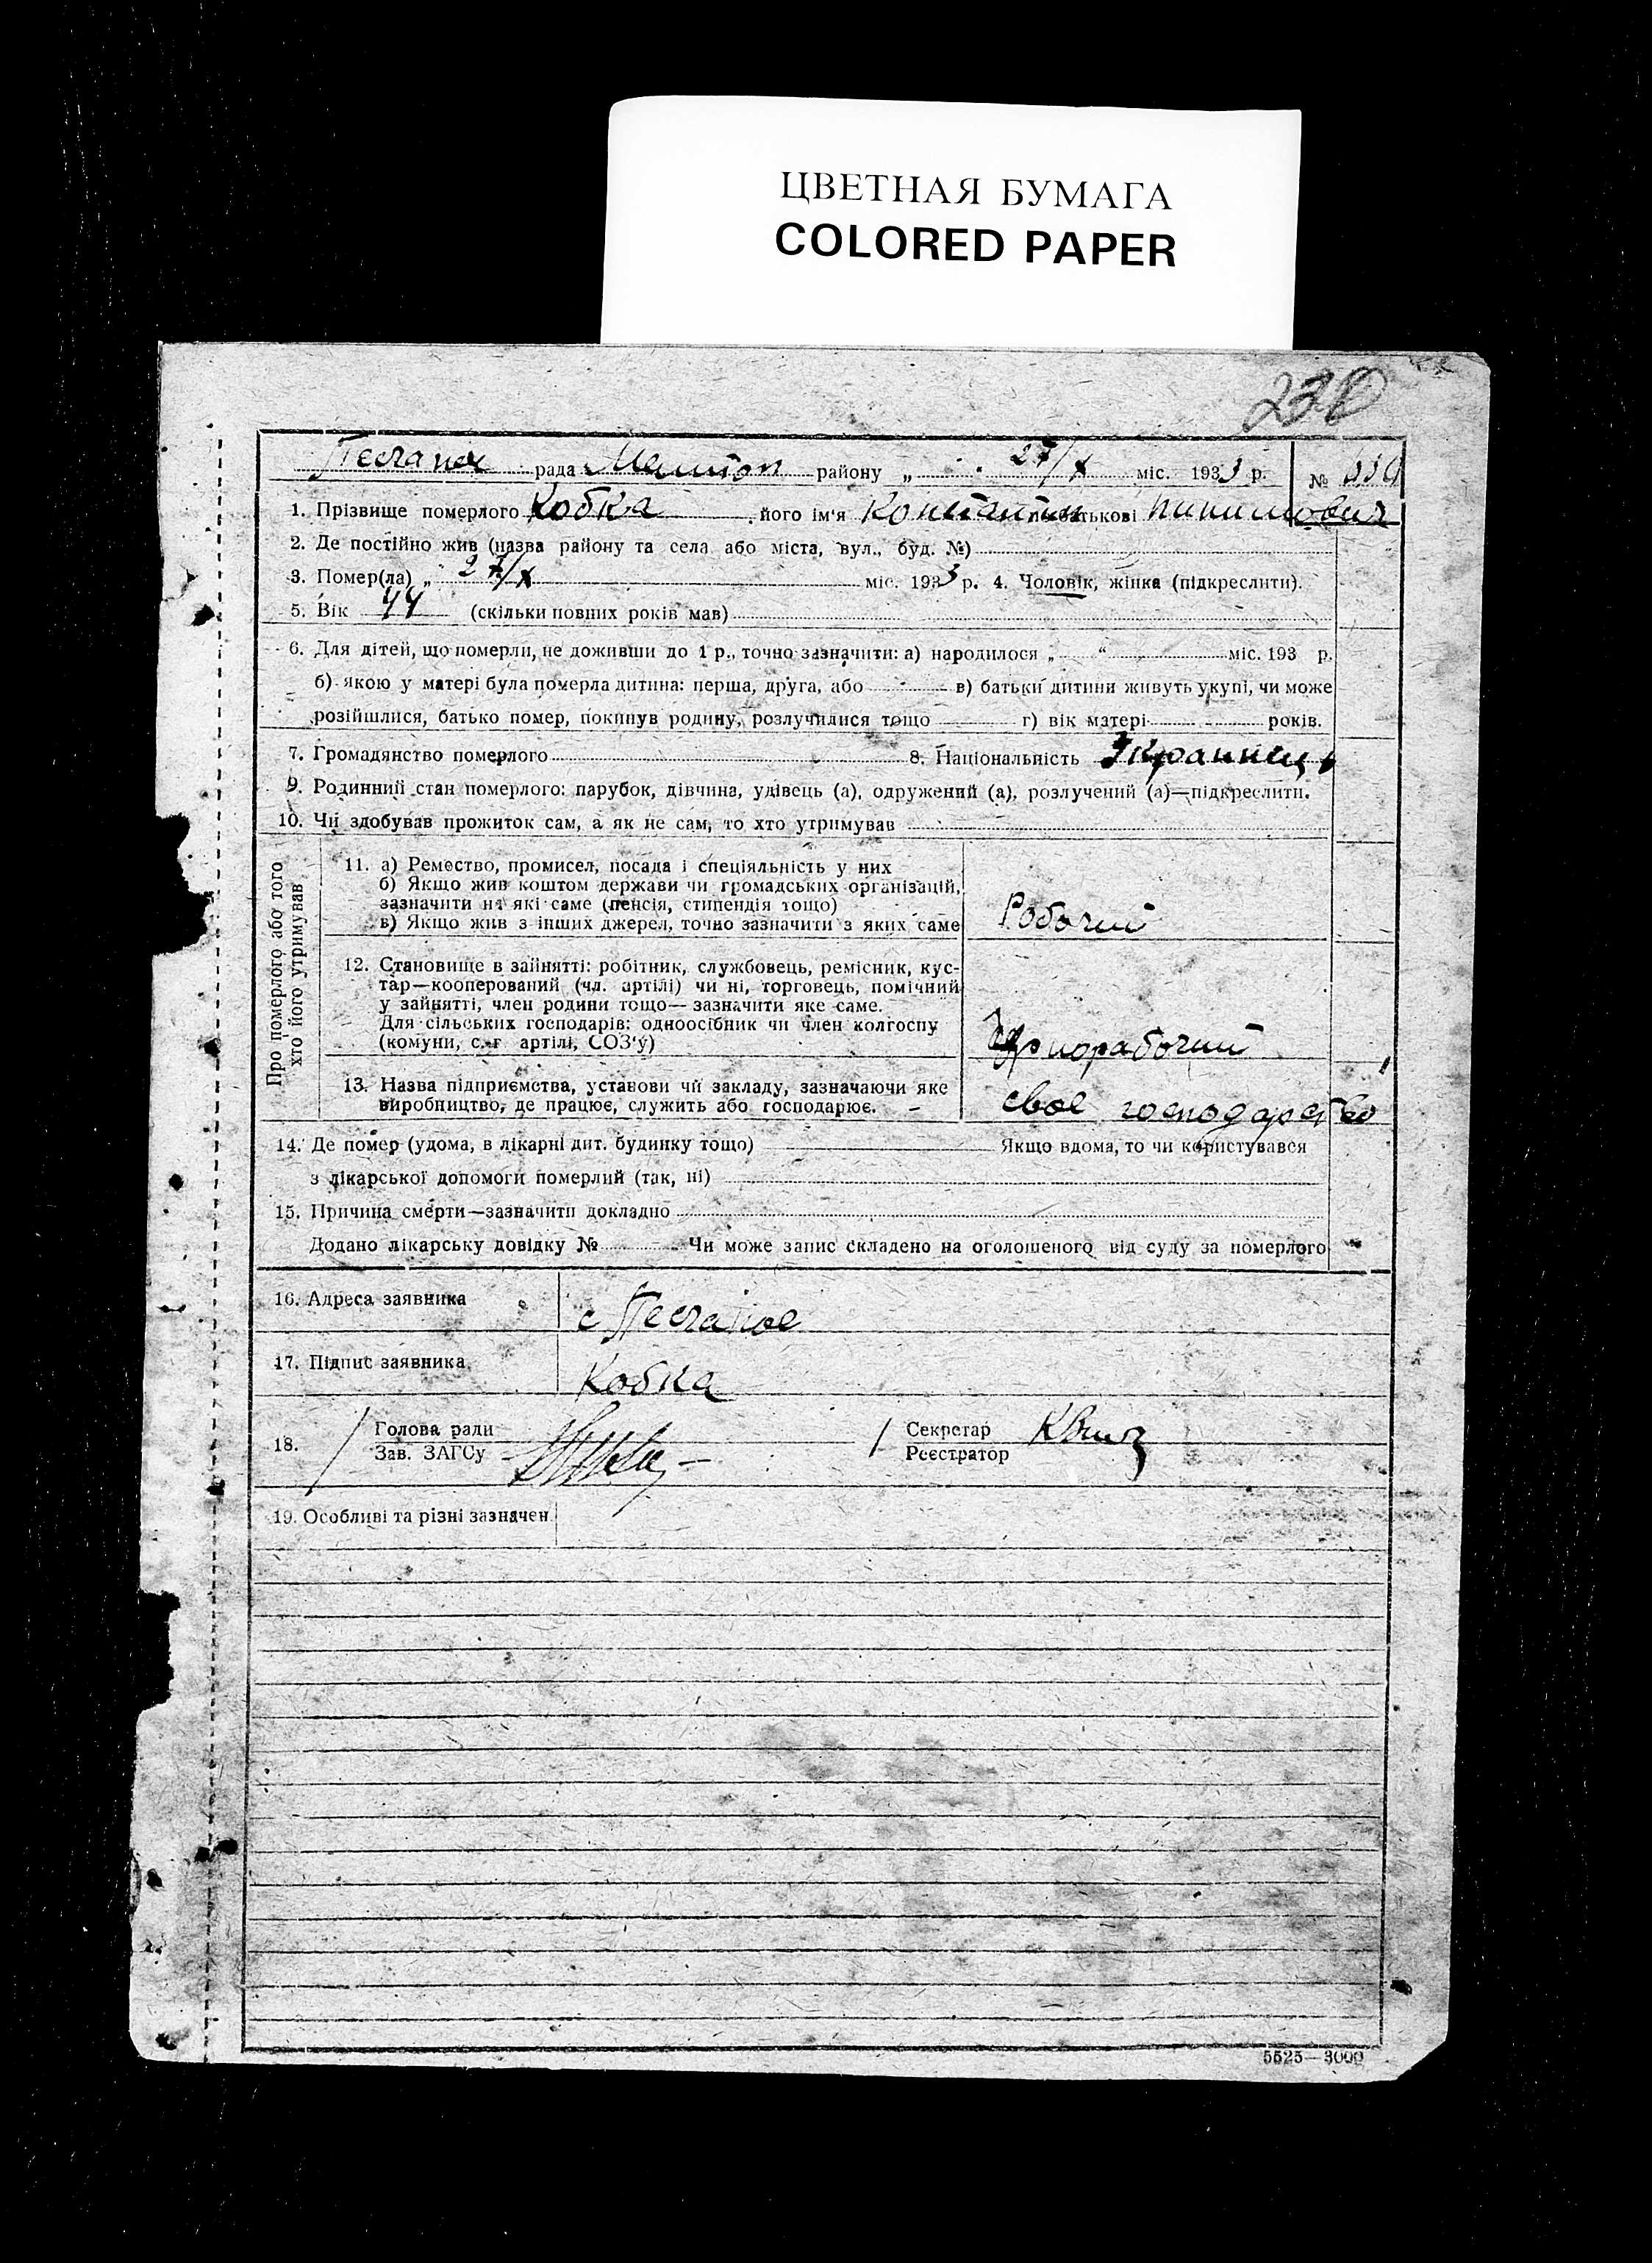 ЦВЕТНАЯ БУМАГА
COLORED PAPER
230
рада район у „ 27/X міс. 1933 р. №
1. Прізвище померлого Кобка його ім'я Константин по батькові
2. Де постійно жив (назва району та села або міста, вул., буд. №)
3. Помер(ла) „ 27/X міс. 1933 р. 4. Чоловік, жінка (підкреслити).
5. Вік 44 (скільки повних років мав)
6. Для дітей, що померли, не доживши до 1 р., точно зазначити: а) народилося „ “ міс. 193 р.
б) якою у матері була померла дитина: перша, друга, або в) батьки дитини живуть укупі, чи може
розійшлися, батько помер, покинув родину, розлучилися тощо г) вік матері років.
7. Громадянство померлого 8. Національність Украинец
9. Родинний стан померлого: парубок, дівчина, удівець (а), одружений (а), розлучений (а)—підкреслити.
10. Чи здобував прожиток сам, а як не сам, то хто утримував
Про померлого або того
хто його утримував
11. а) Ремество, промисел, посада і спеціяльність у них
б) Якщо жив коштом держави чи громадських організацій,
зазначити на які саме (пенсія, стипендія тощо)
в) Якщо жив з інших джерел, точно зазначити з яких саме
Робочий
12. Становище в зайнятті: робітник, службовець, ремісник, кус-
тар—кооперований (чл. артілі) чи ні, торговець, помічний
у зайнятті, член родини тощо— зазначити яке саме.
Для сільських господарів: одноосібник чи член колгоспу
(комуни, с.-г. артілі, СОЗ'у)
Чорнорабочий
13. Назва підприємства, установи чи закладу, зазначаючи яке
виробництво, де працює, служить або господарює. –
свое господарство
14. Де помер (удома, в лікарні дит. будинку тощо) Якщо вдома, то чи користувався
з лікарської допомоги померлий (так, ні)
15. Причина смерти—зазначити докладно
Додано лікарську довідку № Чи може запис складено на оголошеного від суду за померлого
16. Адреса заявника с Песчаное
17. Підпис заявника Кобка
18. Голова ради Секретар
Зав. ЗАГСу Реєстратор
19. Особливі та різні зазначен.
5525—3000